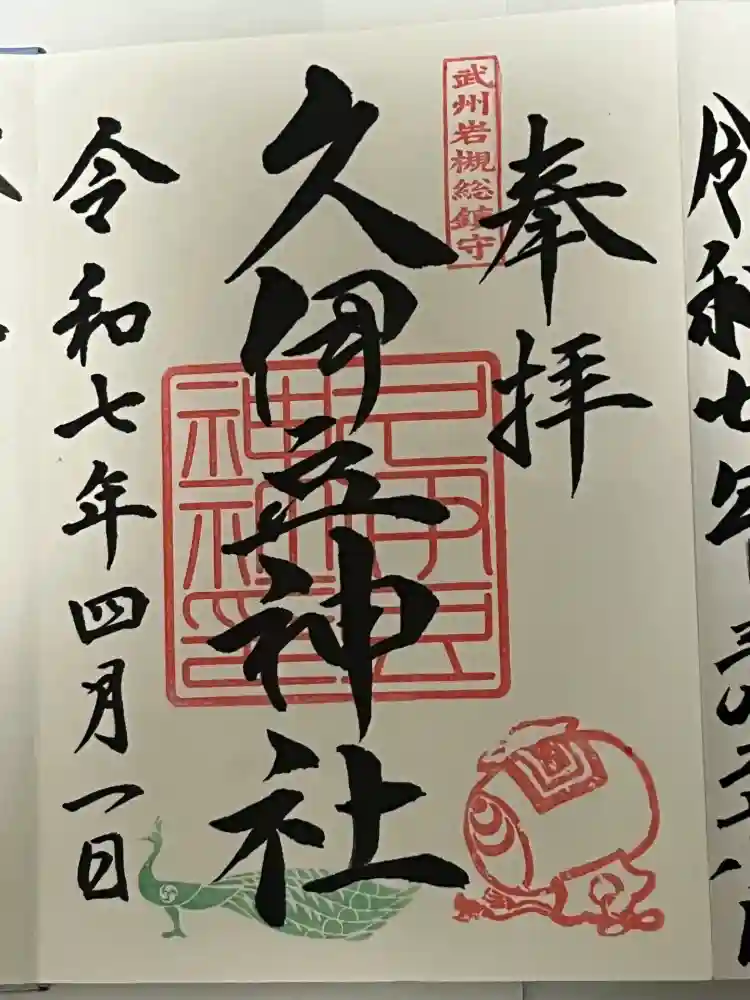 奉拝
武州岩槻総鎮守
久伊豆神社
令和七年四月一日
令和七年